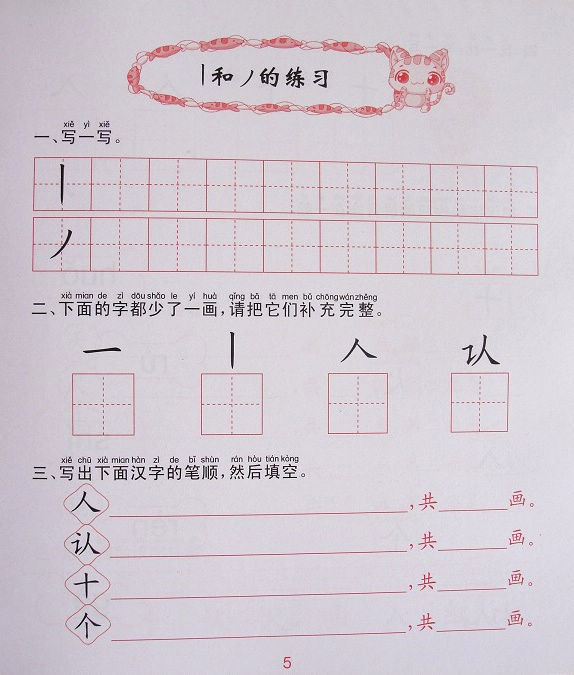 丨和丿的练习
xiě yì xiě
一、写一写。
丨
丿
xià mian de zì dōu shǎo le yí huà qǐng bǎ tā men bǔ chōng wán zhěng
二、下面的字都少了一画,请把它们补充完整。
一 丨 人
xiě chū xià mian hàn zì de bǐ shùn rán hòu tián kòng
三、写出下面汉字的笔顺,然后填空。
人 ,共 画。
认 ,共 画。
十 ,共 画。
个 ,共 画。
5